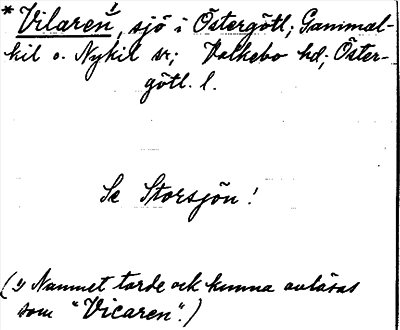 * Vilaren¹⁾, sjö i Östergötl; Gammal-
kil o. Nykil sr; Valkebo hd; Öster-
götl. l.
Se Storsjön!
(¹⁾ Namnet torde ock kunna avläsas
som "Vicaren".)